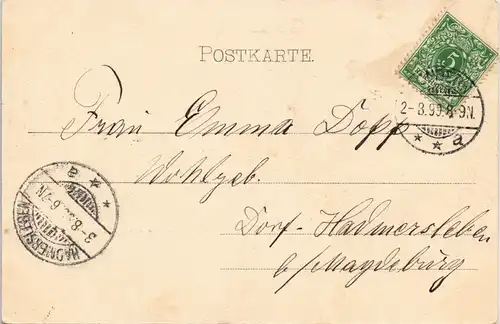 POSTKARTE.
5
2-8.99.8-9N.
* * a
Frau Emma Dopp
Wohlgeb.
Dorf-Hadmersleben
b/Magdeburg
HADMERSLEBEN
3-8.99.6-7N.